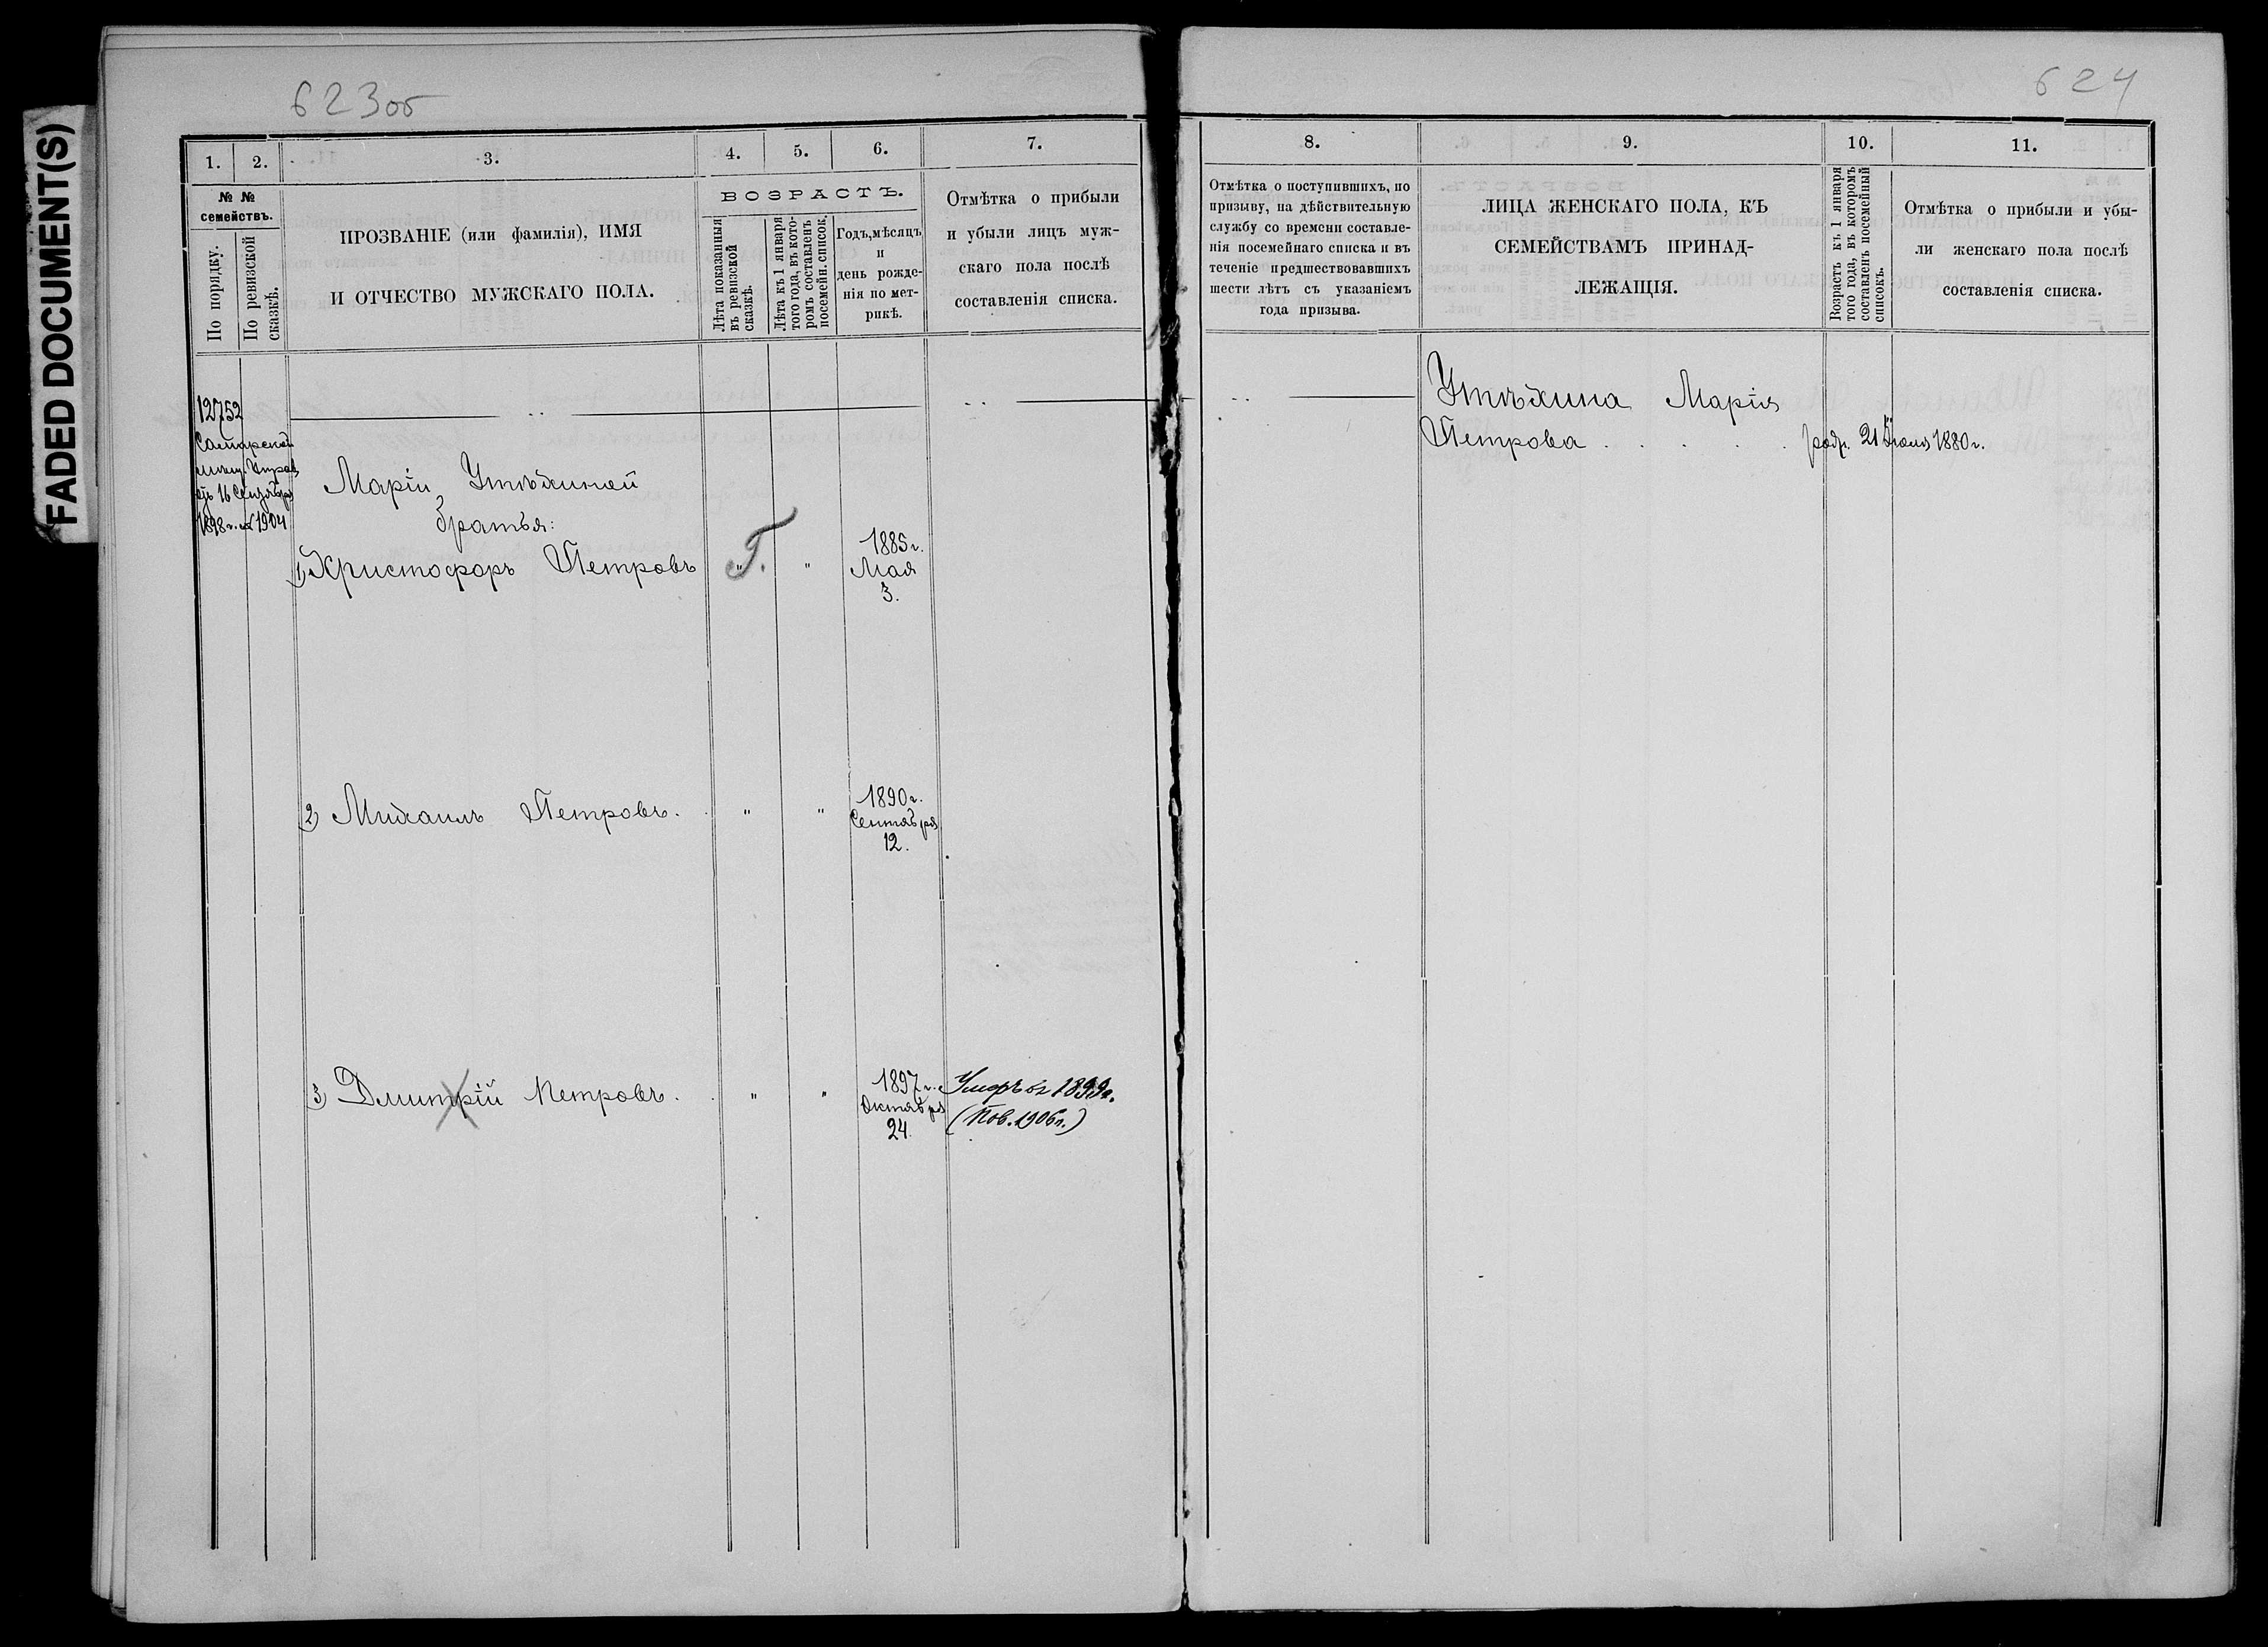 FADED DOCUMENT(S)
623об
624
1.
2.
3.
4.
5.
6.
7.
№ №
семействъ.
По порядку.
По ревизской
сказкѣ.
ПРОЗВАНІЕ (или фамилія), ИМЯ
И ОТЧЕСТВО МУЖСКАГО ПОЛА.
ВОЗРАСТЪ.
Лѣта показанныя
въ ревизской
сказкѣ.
Лѣта къ 1 января
того года, въ кото-
ромъ составленъ
посемейн. список.
Годъ, мѣсяцъ
и
день рожде-
нія по мет-
рикѣ.
Отмѣтка о прибыли
и убыли лицъ муж-
скаго пола послѣ
составленія списка.
12752
Самарской
мѣщ. Управ.
16 Сентября
1898 г. 1904
Маріи Утѣхиной
братья:
1) Христофоръ Петровъ " Г. " 1885 г.
Мая
3.
2) Михаилъ Петровъ. " " 1890 г.
Сентября
12.
3) Дмитрій Петровъ. " " 1897 г.
Октября
24.
Умеръ 1899г.
(Пов. 1906г.)
8.
9.
10.
11.
Отмѣтка о поступившихъ, по
призыву, на дѣйствительную
службу со времени составле-
нія посемейнаго списка и въ
теченіе предшествовавшихъ
шести лѣтъ съ указаніемъ
года призыва.
ЛИЦА ЖЕНСКАГО ПОЛА, КЪ
СЕМЕЙСТВАМЪ ПРИНАД-
ЛЕЖАЩІЯ.
Возрастъ къ 1 января
того года, въ которомъ
составленъ посемейный
списокъ.
Отмѣтка о прибыли и убы-
ли женскаго пола послѣ
составленія списка.
Утѣхина Марія
Петрова . . . . . 21 1880 г.